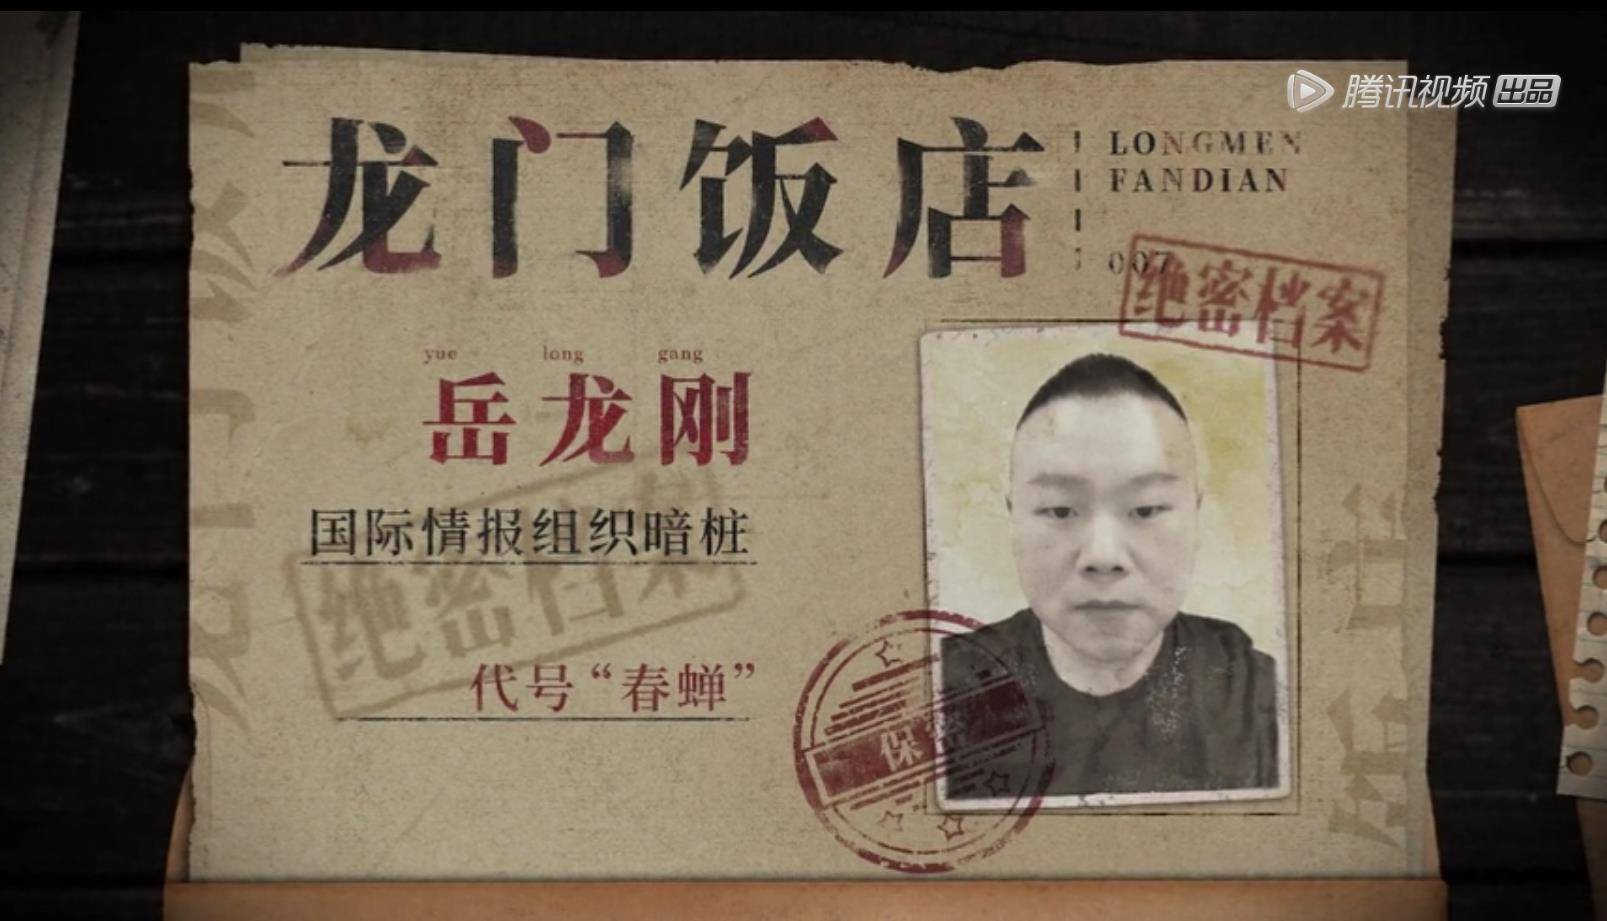 腾讯视频 出品
龙门饭店
LONGMEN
FANDIAN
007
绝密档案
yue long gang
岳龙刚
国际情报组织暗桩
绝密档案
代号“春蝉”
保密